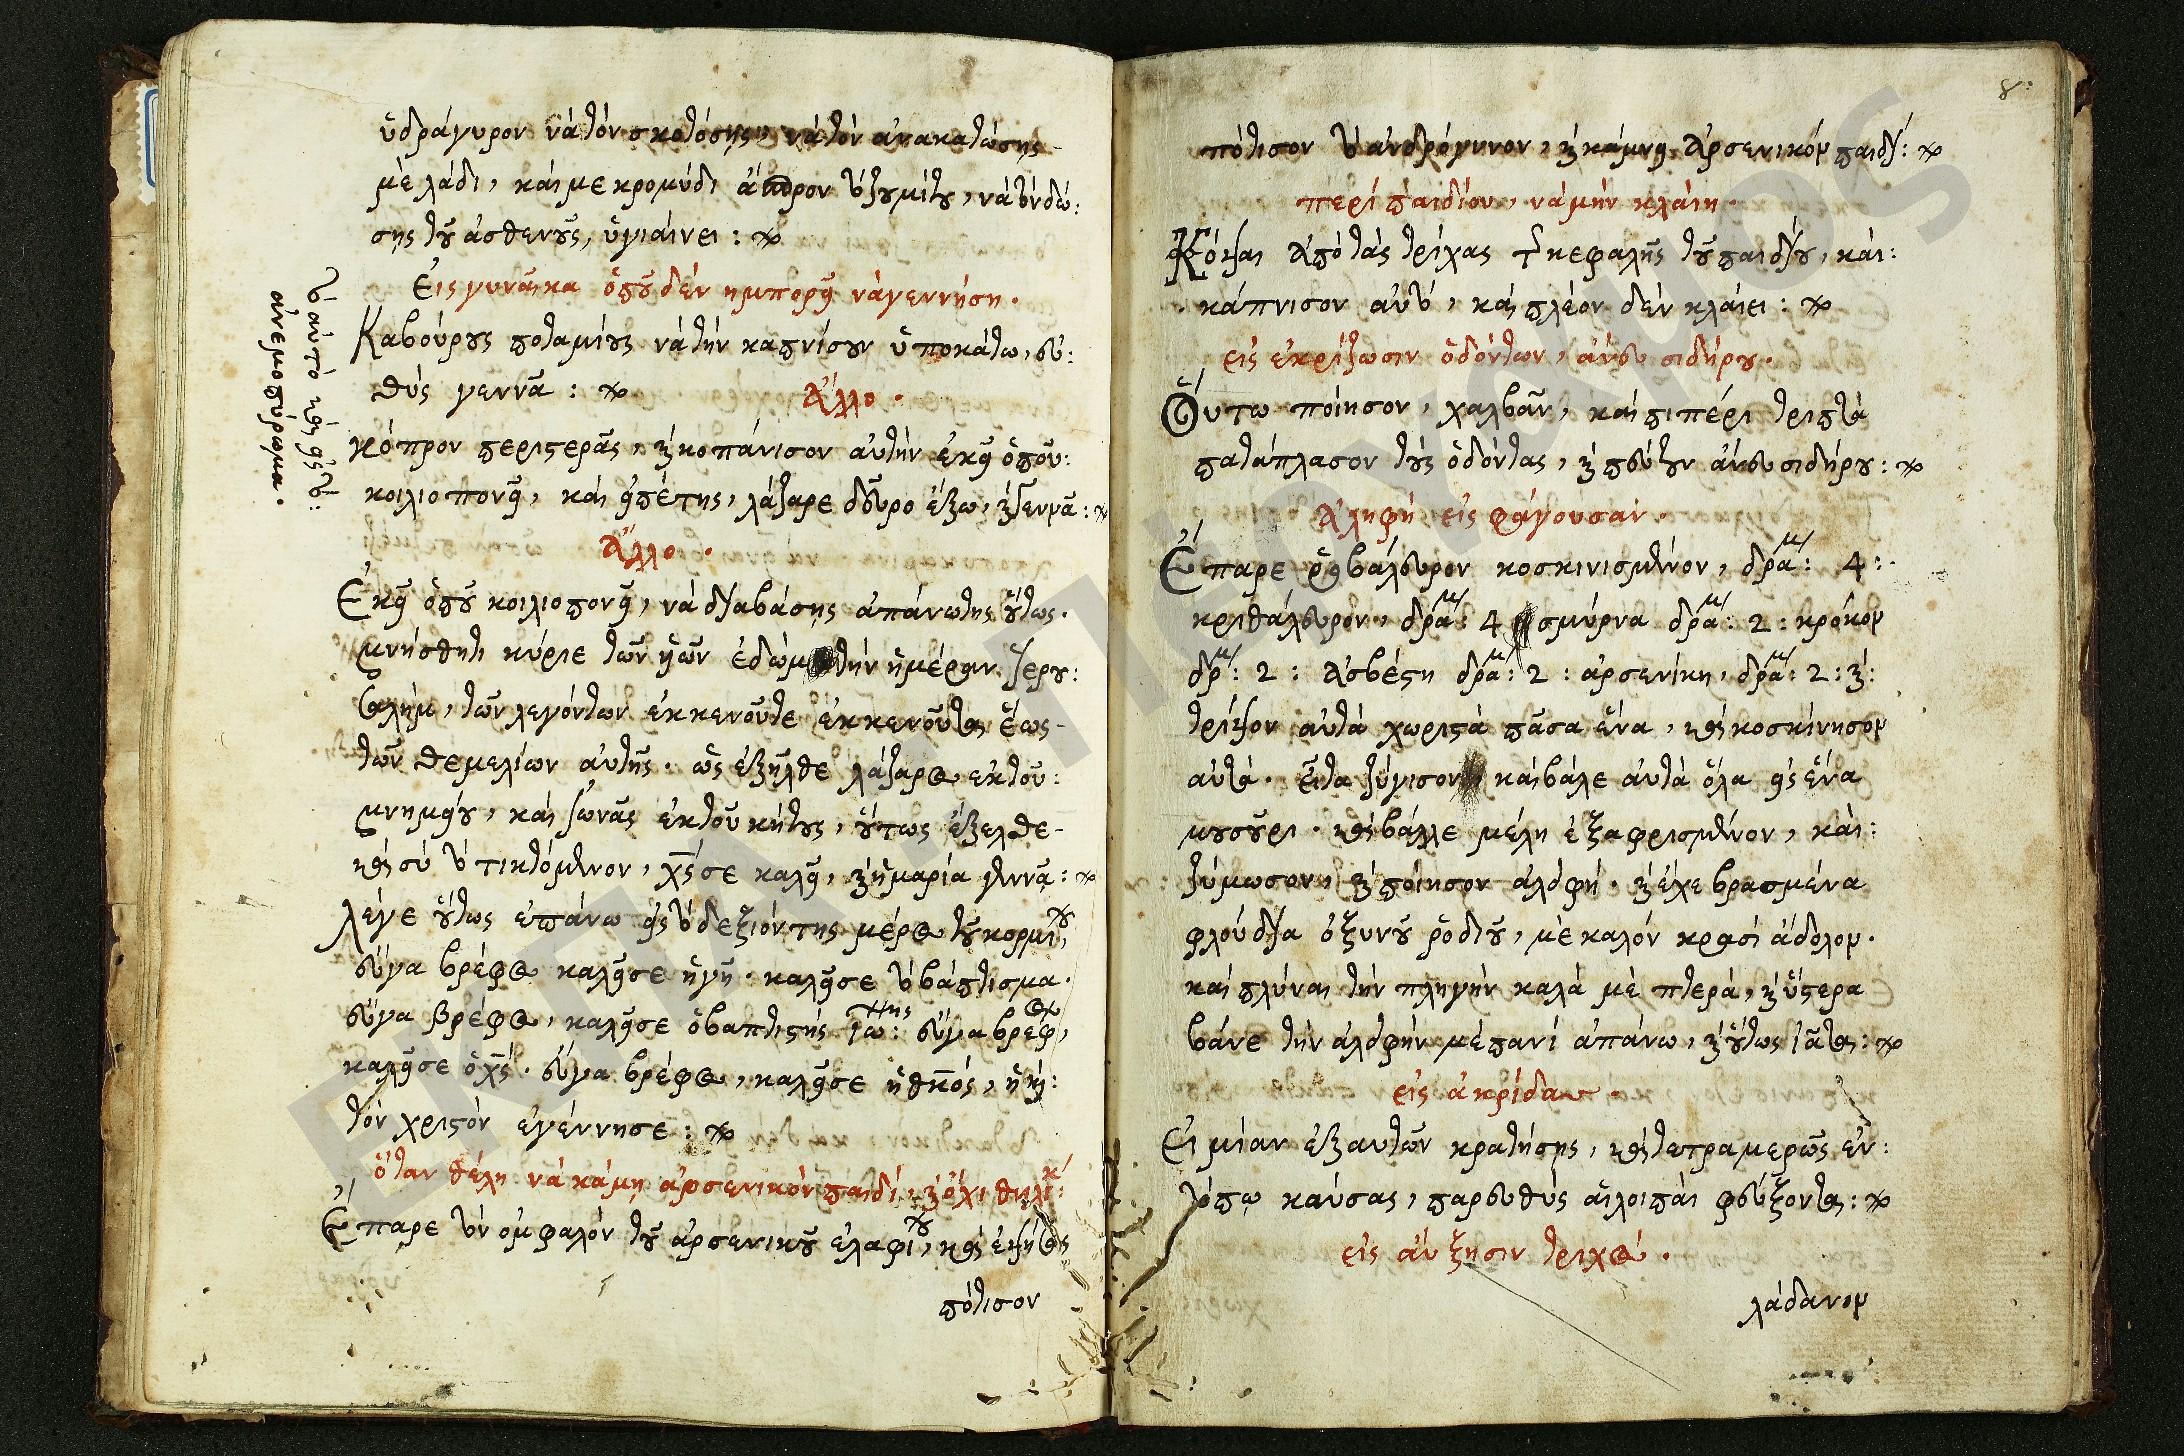 ὑδράγυρον νὰ τὸν σκοτόσῃς, νὰ τὸν ἀνακατώσῃς
μὲ λάδι, καὶ με κρομύδι ἄσπρον τὸ ζουμίτου, νὰ τὸν δώ:
σῃς τοῦ ἀσθενοῦς, ὑγιαίνει :
Εἰς γυναῖκα ὁποῦ δὲν ημπορεῖ νὰ γεννήση.
Καβούρους ποταμίους νὰ τὴν καπνίσουν ὑποκάτω, εὐ:
θὺς γεννᾶ :
Ἄλλο.
κόπρον περιστερᾶς, καὶ κοπάνισον αὐτὴν ἐκεῖ ὁποῦ:
κοιλιοπονεῖ, καὶ εἰπέ της, λάζαρε δεῦρο ἔξω, καὶ γεννᾶ :
Ἄλλο.
Ἐκεῖ ὁποῦ κοιλιοπονεῖ, νὰ διαβάσης ἀπάνωτης οὕτως.
μνήσθητι κύριε τῶν ὑῶν ἐδὼμ τὴν ἡμέραν ἱερου:
σαλήμ, τῶν λεγόντων ἐκκενοῦτε ἐκκενοῦται ἕως
τῶν θεμελίων αὐτῆς. ὡς ἐξῆλθε λάζαρος ἐκ τοῦ:
μνημείου, καὶ ἰωνᾶς ἐκ τοῦ κήτους, οὕτως ἔξελθε
καὶ σὺ τὸ τικτόμενον, χς σε καλεῖ, καὶ ἡ μαρία γεννᾷ :
λέγε οὕτως ἐπάνω εἰς τὸ δεξιόν της μέρος τοῦ κορμίου,
εὔγα βρέφος καλεῖ σε ἡ γῆ. καλεῖ σε τὸ βάπτισμα.
εὔγα βρέφος, καλεῖ σε ὁ βαπτιστής ἰω: εὔγα βρέφος,
καλεῖ σε ὁ χς. εὔγα βρέφος, καλεῖ σε ἡ θκος, ἡ καὶ:
τὸν χριστὸν ἐγέννησε :
ὅταν θέλη νὰ κάμη ἀρσενικὸν παιδί, καὶ ὄχι θηλικ:
Ἔπαρε τὸν ομφαλὸν τοῦ ἀρσενικοῦ ἐλαφίου, καὶ
πότισον
τὸ αὐτὸ καὶ εἰς τὸ:
ἀνεμοπύρωμα.
8:
πότισον τὸ ἀνδρόγυνον, καὶ κάμνει ἀρσενικὸν παιδί :
περὶ παιδίου, νὰ μὴν κλαίη.
Κόψαι ἀπὸ τὰς τρίχας τῆς κεφαλῆς τοῦ παιδίου, καὶ:
κάπνισον αὐτὸ, καὶ πλέον δὲν κλαίει :
εἰς ἐκρίζωσιν ὀδόντων, ἄνευ σιδήρου.
Οὕτω ποίησον, χαλβᾶν, καὶ πιπέρι τριπτὰ
πατάπλασον τοὺς ὀδόντας, καὶ πεύτουν ἄνευ σιδήρου :
Ἀληφὴ εἰς φάγουσαν.
Ἔπαρε ῥοβάλευρον κοσκινισμένον, δράμ: 4:
κριθάλευρον, δράμ: 4 σμύρνα δράμ: 2: κρόκον
δρμ: 2: ἀσβέστη δράμ: 2: ἀρσενίκη, δράμ: 2: καὶ:
τρίψον αὐτὰ χωριστὰ πᾶσα ἕνα, καὶ κοσκίνησον
αὐτά. εἶτα ζύγισον, καὶ βάλε αὐτὰ ὅλα εἰς ἕνα
μουσοῦρι. καὶ βάλλε μέλη ἐξαφρισμένον, καὶ:
ζύμωσον, καὶ ποίησον ἀλοφή. καὶ ἔχε βρασμένα
φλούδια ὀξυνοῦ ῥοδίου, μὲ καλὸν κρασὶ ἄδολον.
καὶ πλύναι τὴν πληγὴν καλὰ μὲ πτερὰ, καὶ ὕστερα
βάνε τὴν ἀλοφὴν μὲ πανὶ ἀπάνω, καὶ οὕτως ἰᾶται :
εἰς ἀκρίδας.
Εἰ μίαν ἐξ αυτῶν κρατήσῃς, καὶ τετραμερῶς ἐν:
τόπῳ καύσας, παρευθὺς αἱ λοιπαὶ φεύξονται :
εἰς αὔξησιν τριχός.
λάδανον